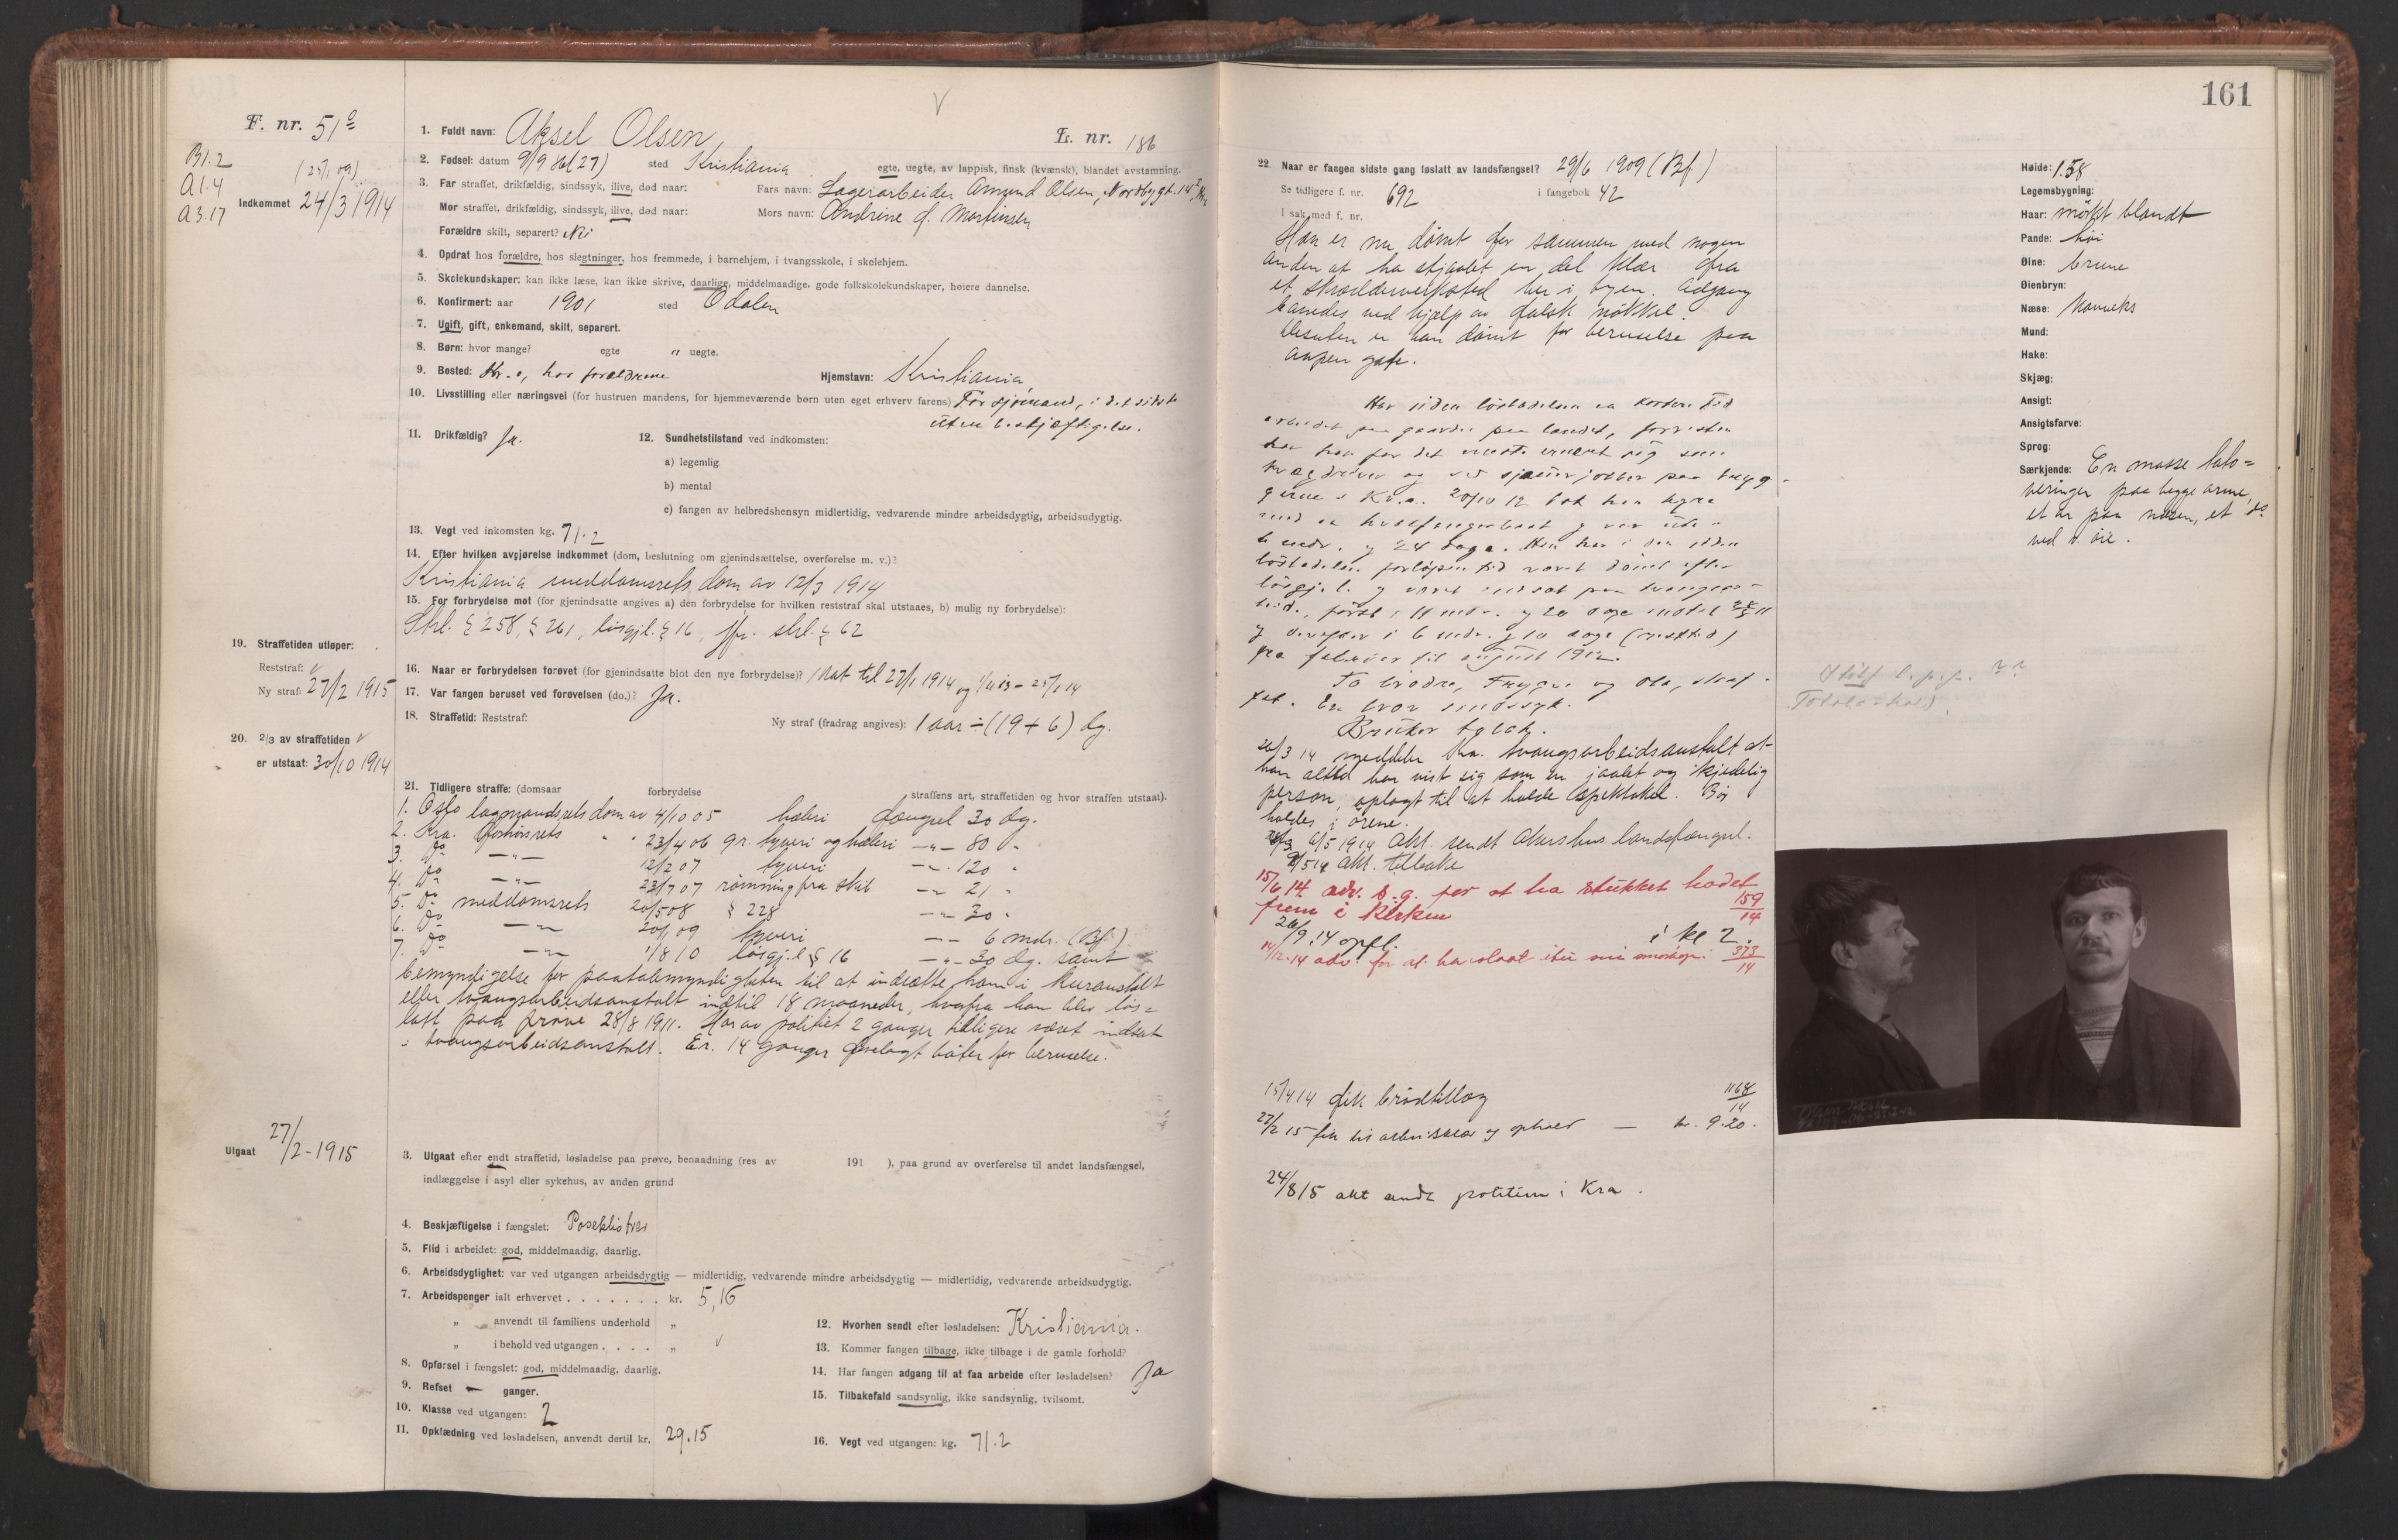 161
F. nr. 51a
B1.2
A1.4
A3.17
(25/1 09)
Indkommet 24/3 1914
1. Fuldt navn: Aksel Olsen
L. nr. 186
2. Fødsel: datum 9/9 86 (27) sted Kristiania egte, uegte, av lappisk, finsk (kvænsk), blandet avstamning.
3. Far straffet, drikfældig, sindssyk, ilive, død naar: Fars navn: Lagerarbeider Amund Olsen, Nordbygt. 14
Mor straffet, drikfældig, sindssyk, ilive, død naar: Mors navn: Andrine f. Martinsen
Forældre skilt, separert? Nei
4. Opdrat hos forældre, hos slegtninger, hos fremmede, i barnehjem, i tvangsskole, i skolehjem.
5. Skolekundskaper: kan ikke læse, kan ikke skrive, daarlige, middelmaadige, gode folkskolekundskaper, høiere dannelse.
6. Konfirmert: aar 1901 sted Odalen
7. Ugift, gift, enkemand, skilt, separert.
8. Børn: hvor mange? egte " uegte.
9. Bosted: Kr.a, hos forældrene Hjemstavn: Kristiania
10. Livsstilling eller næringsvei (for hustruen mandens, for hjemmeværende børn uten eget erhverv farens) Før sjømand, i det sidste
uten beskjæftigelse.
11. Drikfældig? Ja.
12. Sundhetstilstand ved indkomsten:
a) legemlig
b) mental
c) fangen av helbredshensyn midlertidig, vedvarende mindre arbeidsdygtig, arbeidsudygtig.
13. Vegt ved inkomsten kg. 71.2
14. Efter hvilken avgjørelse indkommet (dom, beslutning om gjenindsættelse, overførelse m. v.)?
Kristiania meddomsrets dom av 12/3 1914
15. For forbrydelse mot (for gjenindsatte angives a) den forbrydelse for hvilken reststraf skal utstaaes, b) mulig ny forbrydelse):
Strl. § 258, § 261, løsgjl. § 16, jfr. strl. § 62
16. Naar er forbrydelsen forøvet (for gjenindsatte blot den nye forbrydelse)? Nat til 22/1 1914 og
17. Var fangen beruset ved forøvelsen (do.)? Ja.
18. Straffetid: Reststraf: Ny straf (fradrag angives): 1 aar ÷ (19 + 6) dg.
19. Straffetiden utløper:
Reststraf:
Ny straf: 27/2 1915
20. 2/3 av straffetiden
er utstaat: 30/10 1914
21. Tidligere straffe: (domsaar forbrydelse straffens art, straffetiden og hvor straffen utstaat).
1. Oslo lagmandsrets dom av 4/10 05 hæleri fængsel 30 dg.
2. Kra. forhørsrets " " 23/4 06 gr. tyveri og hæleri —"— 80 "
3. Do —"— 12/2 07 tyveri —"— 120 "
4. Do —"— 23/7 07 rømning fra skib —"— 21 "
5. Do meddomsrets 20/5 08 § 228 —"— 30 "
6. Do —"— 20/1 09 tyveri —"— 6 mdr. (Bf.)
7. Do —"— 1/8 10 løsgj.l § 16 —"— 30 dg. samt
bemyndigelse for paatalemyndigheten til at indsætte ham i kuranstalt
eller tvangsarbeidsanstalt indtil 18 maaneder, hvorfra han blev løs=
latt paa prøve 28/8 1911. Har av politiet 2 ganger tidligere været indsat
i tvangsarbeidsanstalt. Er 14 ganger forelagt bøter for beruselse.
Utgaat 27/2 - 1915
3. Utgaat efter endt straffetid, løsladelse paa prøve, benaadning (res av 191 ), paa grund av overførelse til andet landsfængsel,
indlæggelse i asyl eller sykehus, av anden grund
4. Beskjæftigelse i fængslet: Poseklistrer
5. Flid i arbeidet: god, middelmaadig, daarlig.
6. Arbeidsdygtighet: var ved utgangen arbeidsdygtig — midlertidig, vedvarende mindre arbeidsdygtig — midlertidig, vedvarende arbeidsudygtig.
7. Arbeidspenger ialt erhvervet . . . . . . . kr. 5,16
" anvendt til familiens underhold "
" i behold ved utgangen . . . . "
8. Opførsel i fængslet: god, middelmaadig, daarlig.
9. Refset — ganger.
10. Klasse ved utgangen: 2
11. Opklædning ved løsladelsen, anvendt dertil kr. 29.15
12. Hvorhen sendt efter løsladelsen: Kristiania.
13. Kommer fangen tilbage, ikke tilbage i de gamle forhold?
14. Har fangen adgang til at faa arbeide efter løsladelsen? Ja
15. Tilbakefald sandsynlig, ikke sandsynlig, tvilsomt.
16. Vegt ved utgangen: kg. 71.2
22. Naar er fangen sidste gang løslatt av landsfængsel? 29/6 1909 (Bf.)
Se tidligere f. nr. 692 i fangebok 42
I sak med f. nr.
Han er nu dømt for sammen med nogen
anden at ha stjaalet en del klær fra
et skrædderverksted her i byen. Adgang
banedes ved hjælp av falsk nøkkel.
Desuten er han dømt for beruselse paa
aapen gate.
Har siden løsladelsen en kortere tid
arbeidet paa gaarder paa landet, forresten
har han for det meste ernært sig som
og ved sjauerjobber paa brygg-
gerne i Kr.a. 20/10 12 tok han hyre
med en hvalfangerbaat og var ute i
6 mdr. og 24 dage. Han har i den siden
løsladelsen forløpne tid været dømt efter
løsgj.l. og været indsat paa tvangsar-
beid, først i 11 mdr. og 20 dage indtil
og derefter i 6 mdr. og 10 dage (resttid)
fra februar til august 1912.
To brødre, Trygve og Ola, straf-
fet. En bror sindssyk.
Bruker tobak.
26/3 14 meddeler Kra. tvangsarbeidsanstalt at
han altid har vist sig som en jaalet og skjødelig
person, oplagt til at holde spektakel. Bør
holdes i ørene.
6/5 1914 Akt. sendt Akershus landsfængsel.
5 14 Akt. tilbake
15/6 14. adv. s.g. for at ha stukket hodet 159/14
frem i kirken
26/9 14 opfl. i kl 2.
14/12.14 adv. for at ha 373/14
15/4 14 fik brødtillæg 1168/14
27/2 15 fik til arbeidsklær og ophold — kr. 9.20.
24/8 15 akt sendt politiet i Kra.
Høide: 1.58
Legemsbygning:
Haar: mørkt blondt
Pande: høi
Øine: brune
Øienbryn:
Næse: konveks
Mund:
Hake:
Skjæg:
Ansigt:
Ansigtsfarve:
Sprog:
Særkjende: En masse tato=
veringer paa begge arme,
et ar paa næsen, et do
ved v. øie.